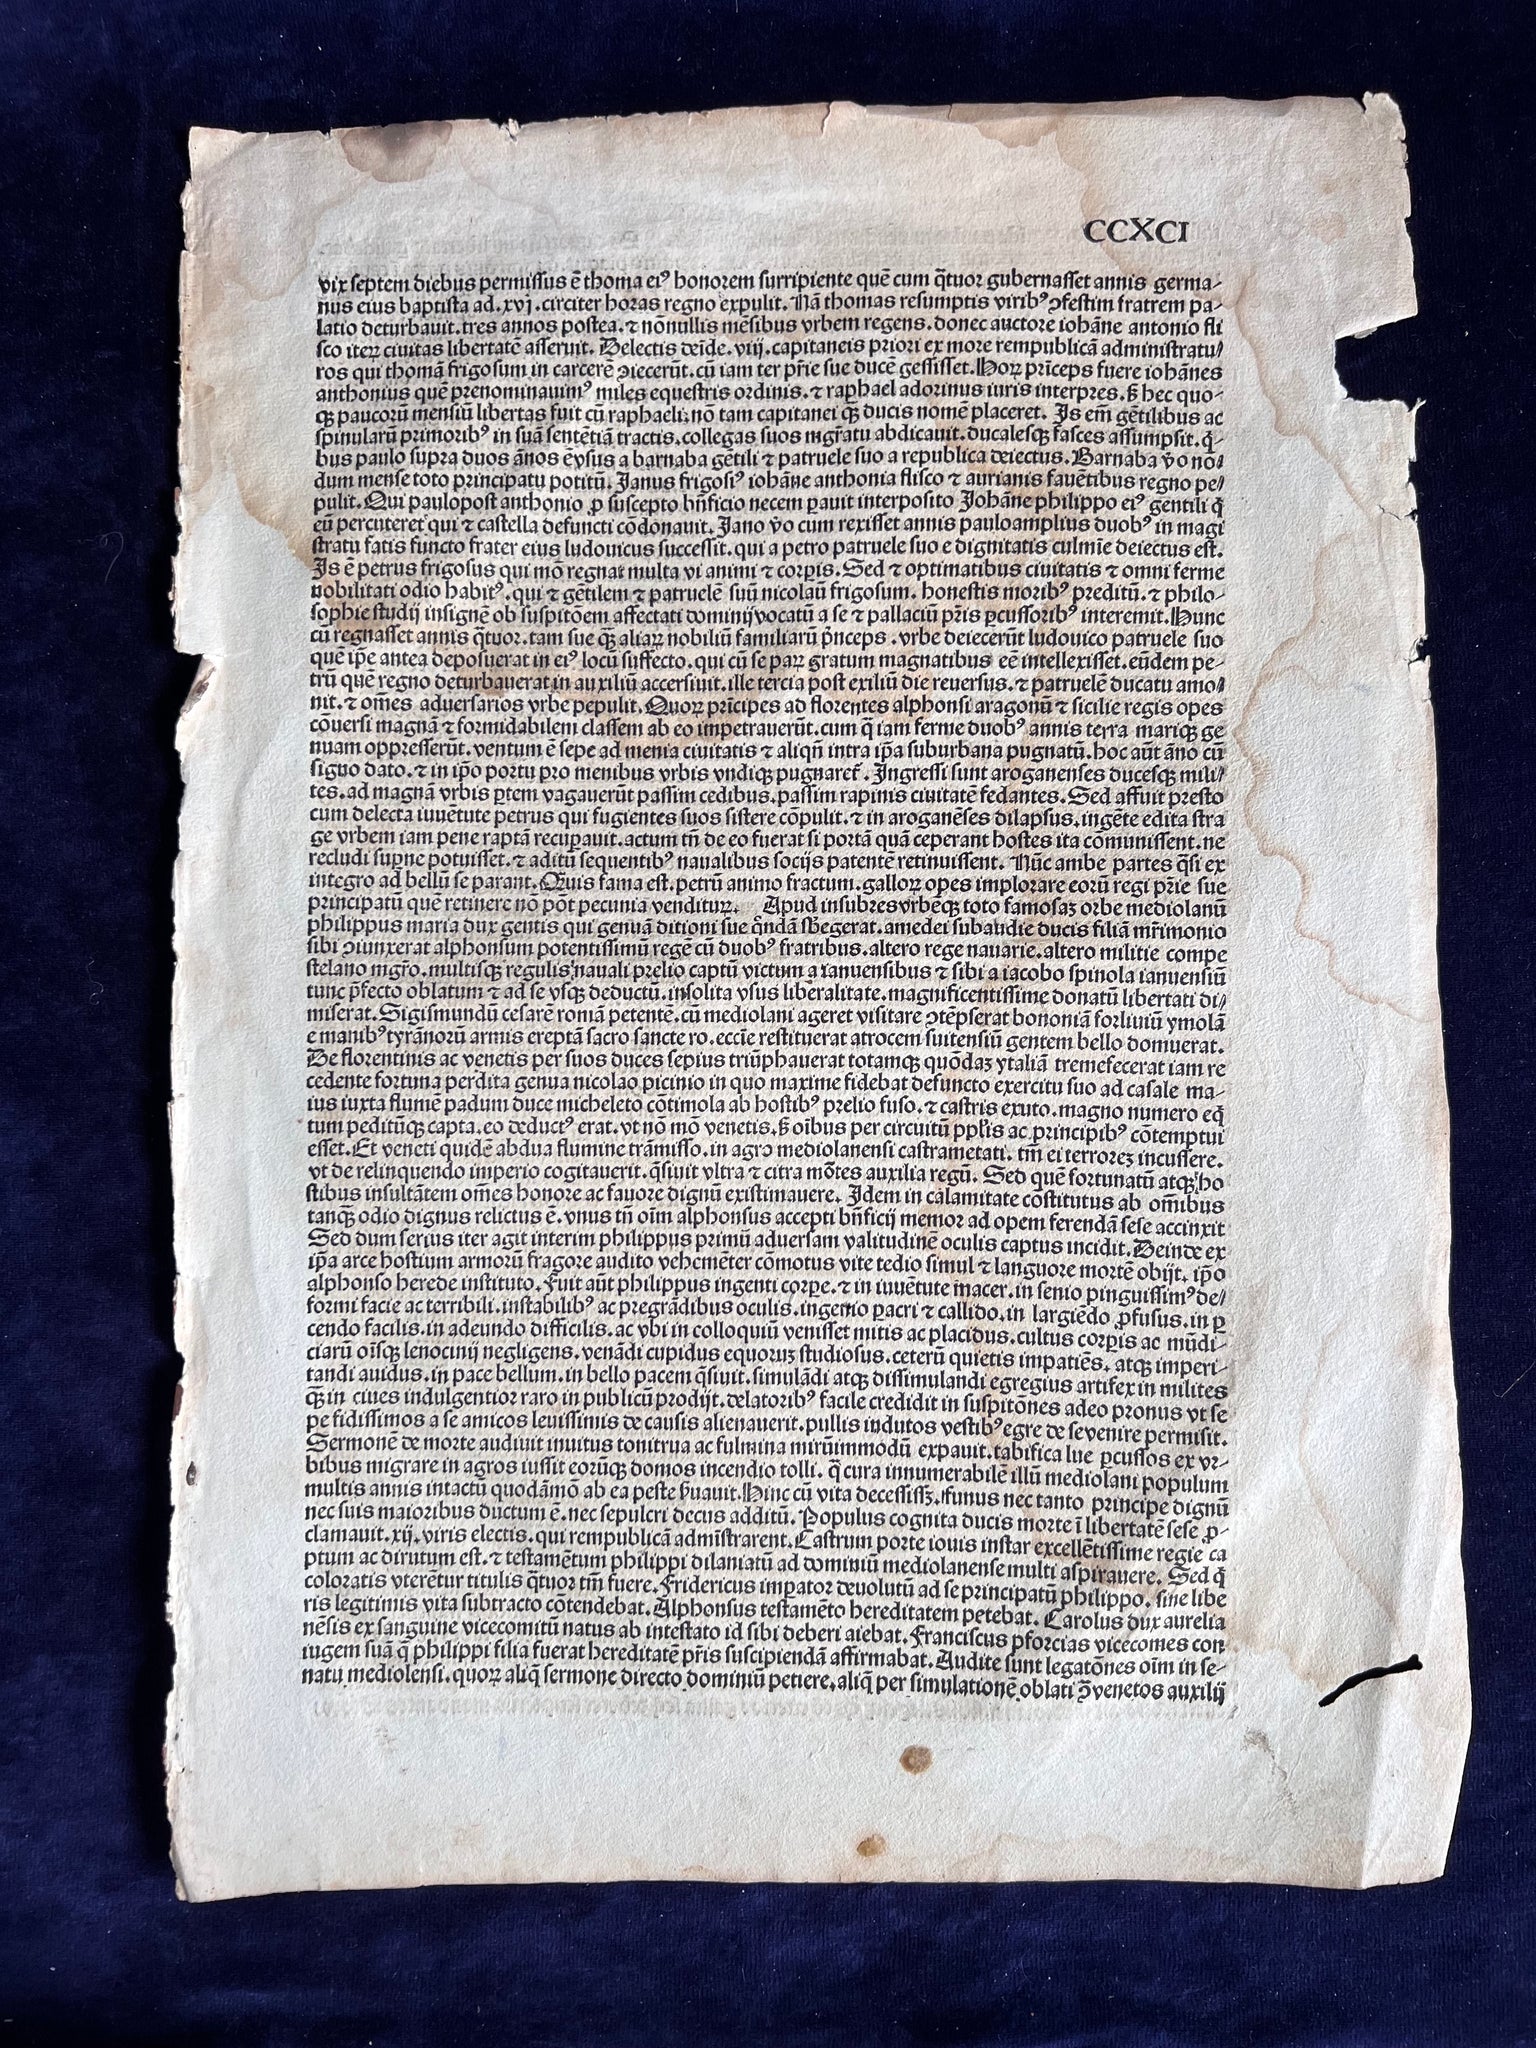 CCXCI
vix septem diebus permissus ē thoma eiꝰ honorem surripiente quē cum q̄tuor gubernasset annis germa-
nus eius baptista ad.xvj.circiter horas regno expulit. Nā thomas resumptis viribꝰ ꝯfestim fratrem pa-
latio deturbauit.tres annos postea.⁊ nōnullis mēsibus vrbem regens.donec auctore iohāne antonio fli
sco iteꝝ ciuitas libertatē asseruit. Delectis deīde.viij.capitaneis priori ex more rempublicā administratu/
ros qui thomā frigosum in carcerē ꝯiecerūt.cū iam ter p̄rie sue ducē gessisset.Hoꝝ prīceps fuere iohānes
anthonius quē prenominauimꝰ miles equestris ordinis.⁊ raphael adorinus iuris interpres.s̄ hec quo-
qꝫ paucorū mensiū libertas fuit cū raphaeli nō tam capitanei qꝫ ducis nomē placeret. Is em̄ gētilibus ac
spinularū primoribꝰ in suā sentētiā tractis.collegas suos mgr̄atu abdicauit.ducalesqꝫ fasces assumpsit.q̄-
bus paulo supra duos ānos ēvsus a barnaba gētili ⁊ patruele suo a republica deiectus.Barnaba v̄o no/
dum mense toto principatu potitū.Janus frigosiꝰ iohāne anthonia flisco ⁊ aurianis fauētibus regno pe/
pulit.Qui paulopost anthonio ꝓ suscepto bn̄ficio necem pauit interposito Johāne philippo eiꝰ gentili q̄
eū percuteret qui ⁊ castella defuncti cōdonauit.Jano v̄o cum rexisset annis pauloamplius duobꝰ in magi
stratu fatis functo frater eius ludouicus successit.qui a petro patruele suo e dignitatis culmīe deiectus est.
Is ē petrus frigosus qui mō regnat multa vi animi ⁊ corpis.Sed ⁊ optimatibus ciuitatis ⁊ omni ferme
nobilitati odio habitꝰ.qui ⁊ gētilem ⁊ patruelē suū nicolaū frigosum. honestis moribꝰ preditū.⁊ philo-
sophie studij insignē ob suspitōem affectati dominij vocatū a se ⁊ pallaciū p̄ris ꝑcussoribꝰ interemit.Hunc
cū regnasset annis q̄tuor.tam sue qꝫ aliaꝝ nobiliū familiarū p̄nceps.vrbe deiecerūt ludouico patruele suo
quē ip̄e antea deposuerat in eiꝰ locū suffecto.qui cū se paꝝ gratum magnatibus eē intellexisset.eūdem pe-
trū quē regno deturbauerat in auxiliū accersiuit.ille tercia post exiliū die reuersus.⁊ patruelē ducatu amo/
uit.⁊ om̄es aduersarios vrbe pepulit.Quoꝝ prīcipes ad florentes alphonsi aragonū ⁊ sicilie regis opes
cōuersi magnā ⁊ formidabilem classem ab eo impetrauerūt.cum q̄ iam ferme duobꝰ annis terra mariqꝫ ge
nuam oppresserūt.ventum ē sepe ad menia ciuitatis ⁊ aliqn̄ intra ip̄a suburbana pugnatū.hoc aūt āno cū
signo dato.⁊ in ip̄o portu pro menibus vrbis vndiqꝫ pugnaret̄.Ingressi sunt aroganenses ducesqꝫ mili/
tes.ad magnā vrbis ꝑtem vagauerūt passim cedibus.passim rapinis ciuitatē fedantes.Sed affuit presto
cum delecta iuuētute petrus qui fugientes suos sistere cōpulit.⁊ in aroganēses dilapsus.ingēte edita stra
ge vrbem iam pene raptā recuꝑauit.actum tn̄ de eo fuerat si portā quā ceperant hostes ita cōmunissent.ne
recludi supne potuisset.⁊ aditū sequentibꝰ naualibus socijs patentē retinuissent. Nūc ambe partes q̄si ex
integro ad bellū se parant.Quis fama est.petrū animo fractum.galloꝝ opes implorare eorū regi p̄rie sue
principatū quē retinere nō pōt pecunia vendituꝝ. Apud insubres vrbēqꝫ toto famosaꝫ orbe mediolanū
philippus maria dux gentis qui genuā ditioni sue q̄ndā sb̄egerat.amedei subaudie ducis filiā mr̄imonio
sibi ꝯiunxerat alphonsum potentissimū regē cū duobꝰ fratribus.altero rege nauarie.altero militie compe
stelano mgr̄o.multisqꝫ regulis nauali prelio captū victum a ianuensibus ⁊ sibi a iacobo spinola ianuensiū
tunc p̄fecto oblatum ⁊ ad se vsqꝫ deductū.insolita vsus liberalitate.magnificentissime donatū libertati di/
miserat.Sigismundū cesarē romā petentē.cū mediolani ageret visitare ꝯtēpserat bononiā forliuiū ymolā
e manibꝰ tyrānorū armis ereptā sacro sancte ro.eccīe restituerat atrocem suitensiū gentem bello domuerat.
De florentinis ac venetis per suos duces sepius triūphauerat totamqꝫ quōdaꝫ ytaliā tremefecerat iam re
cedente fortuna perdita genua nicolao picinio in quo maxime fidebat defuncto exercitu suo ad casale ma-
ius iuxta flumē padum duce micheleto cōtimola ab hostibꝰ prelio fuso.⁊ castris exuto.magno numero eq̄
tum peditūqꝫ capta.eo deductꝰ erat.vt nō mō venetis.s̄ oībus per circuitū pplīs ac principibꝰ cōtemptui
esset.Et veneti quidē abdua flumine trāmisso.in agro mediolanensi castrametati. tm̄ ei terrorez incussere.
vt de relinquendo imperio cogitauerit.q̄siuit vltra ⁊ citra mōtes auxilia regū. Sed quē fortunatū atqꝫ ho
stibus insultātem om̄es honore ac fauore dignū existimauere. Idem in calamitate cōstitutus ab om̄ibus
tanqꝫ odio dignus relictus ē.vnus tn̄ oīm alphonsus accepti bn̄ficij memor ad opem ferendā sese accinxit
Sed dum serius iter agit interim philippus primū aduersam valitudinē oculis captus incidit.Deinde ex
ip̄a arce hostium armorū fragore audito vehemēter cōmotus vite tedio simul ⁊ languore mortē obijt. ip̄o
alphonso herede instituto.Fuit aūt philippus ingenti corpe.⁊ in iuuētute macer.in senio pinguissimꝰ de/
formi facie ac terribili.instabilibꝰ ac pregrādibus oculis.ingenio ꝑacri ⁊ callido.in largiēdo ꝓfusus.in ꝑ
cendo facilis.in adeundo difficilis.ac vbi in colloquiū venisset mitis ac placidus.cultus corpis ac mūdi-
ciarū oīsqꝫ lenocinij negligens.venādi cupidus equoruꝫ studiosus.ceterū quietis impatiēs. atqꝫ imperi-
tandi auidus.in pace bellum.in bello pacem q̄siuit.simulādi atqꝫ dissimulandi egregius artifex in milites
qꝫ in ciues indulgentior raro in publicū prodijt.delatoribꝰ facile credidit in suspitōnes adeo pronus vt se
pe fidissimos a se amicos leuissimis de causis alienauerit.pullis indutos vestibꝰ egre de se venire permisit.
Sermonē de morte audiuit inuitus tonitrua ac fulmina mirūimmodū expauit.tabifica lue ꝑcussos ex vr-
bibus migrare in agros iussit eorūqꝫ domos incendio tolli. q̄ cura innumerabilē illū mediolani populum
multis annis intactū quodāmō ab ea peste s̄uauit.Hinc cū vita decessissꝫ.funus nec tanto principe dignū
nec suis maioribus ductum ē.nec sepulcri decus additū. Populus cognita ducis morte ī libertatē sese ꝓ-
clamauit.xij.viris electis.qui rempublicā admīstrarent.Castrum porte iouis instar excellētissime regie ca
ptum ac dirutum est.⁊ testamētum philippi dilaniatū ad dominiū mediolanense multi aspirauere. Sed q̄
coloratis vterētur titulis q̄tuor tm̄ fuere.Fridericus imꝑator deuolutū ad se principatū philippo. sine libe
ris legitimis vita subtracto cōtendebat.Alphonsus testamēto hereditatem petebat. Carolus dux aurelia
nēsis ex sanguine vicecomitū natus ab intestato id sibi deberi aiebat.Franciscus pforcias vicecomes con
iugem suā q̄ philippi filia fuerat hereditatē p̄ris suscipiendā affirmabat.Audite sunt legatōnes oīm in se-
natu mediolensi.quoꝝ aliq̄ sermone directo dominiū petiere.aliq̄ per simulationē oblati ꝯ̄venetos auxilij